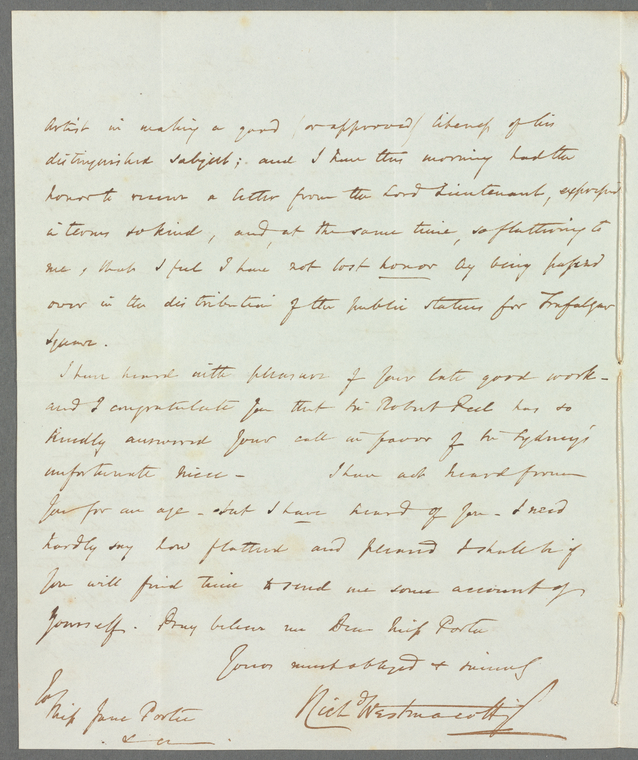 Artist in making a good (or approved) likeness of his
distinguished subject; and I have this morning had the
honor to receive a letter from the Lord Lieutenant, expressed
in terms so kind, and, at the same time, so flattering to
me, that I feel I have not lost honor by being passed
over in the distribution of the public statues for Trafalgar
Square.
I have heard with pleasure of your late good work -
and I congratulate you that Sir Robert Peel has so
kindly answered your call in favor of Sir Sydney's
unfortunate niece - I have not heard from
you for an age - but I have heard of you - I need
hardly say how flattered and pleased I shall be if
you will find time to send me some account of
yourself. Pray believe me Dear Miss Porter
Yours much obliged & sincerely
Richd Westmacott Jr
To/
Miss Jane Porter
&c